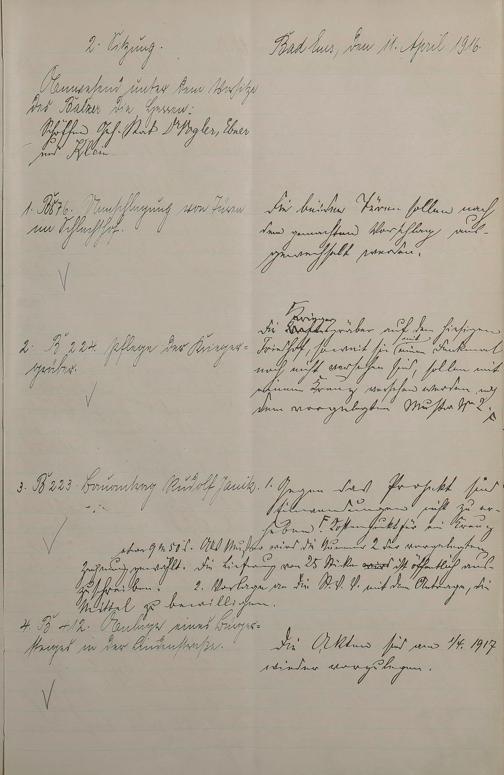 2. Sitzung.
Bad Ems, den 11. April 1916.
Anwesend unter dem Vorsitze
des die Herren:
Schöffen Geh. Rat Dr Vogler, Ebner
und Klein
1. B 876. von Türen
im Schlachthof.
Die beiden Türen sollen nach
dem gemachten Vorschlag aus-
gewechselt werden.
2. B 224. Pflege der Krieger-
gräber.
Die Kriegergräber auf dem hiesigen
Friedhof, soweit sie mit einem Denkmal
noch nicht versehen sind, sollen mit
einem Kreuz versehen werden, nach
dem vorgelegten Muster No 2.
3. B 223 Bauantrag Rudolf Janik.
1. Gegen das Projekt sind
Einwendungen nicht zu er-
heben. für ein Kreuz
etwa 9 M 50 d. Als Muster wird die Nummer 2 der vorgelegten
Zeichnung gewählt. Die Lieferung von 25 Stück ist öffentlich aus-
zuschreiben. 2. Vorlage an die St. V. V. mit dem Antrage, die
Mittel zu bewilligen.
4. B 12. Anlage eines Bürger-
steiges in der Lindenstraße.
Die Akten sind am 1/4. 1917
wieder vorzulegen.